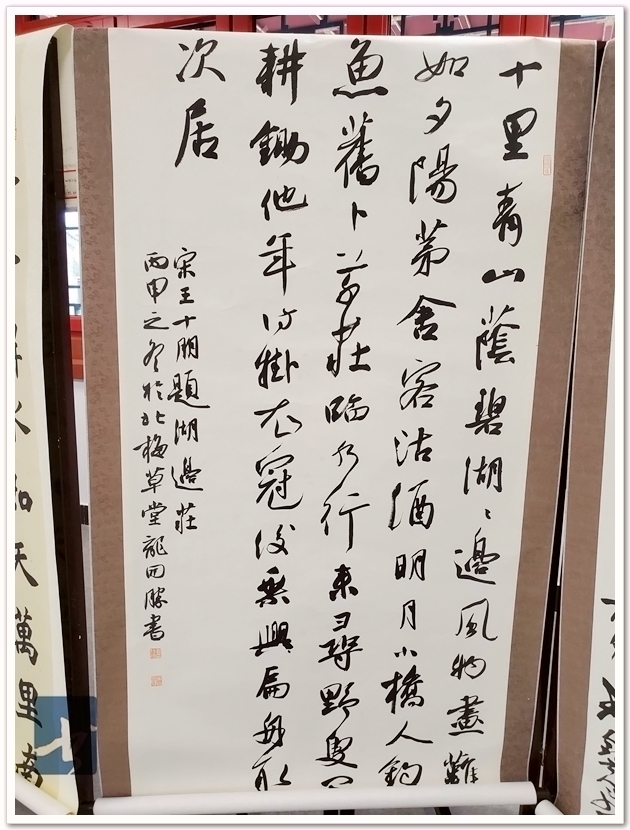 十里青山蔭碧湖〻邊風物畫難
如夕陽茅舍客沽酒明月小橋人釣
魚舊卜草莊臨水竹來尋野叟問
耕鋤他年得掛衣冠後乘興扁舟取
次居
宋王十朋題湖邊莊
丙申之冬於北梅草堂龍四勝書
天萬里南